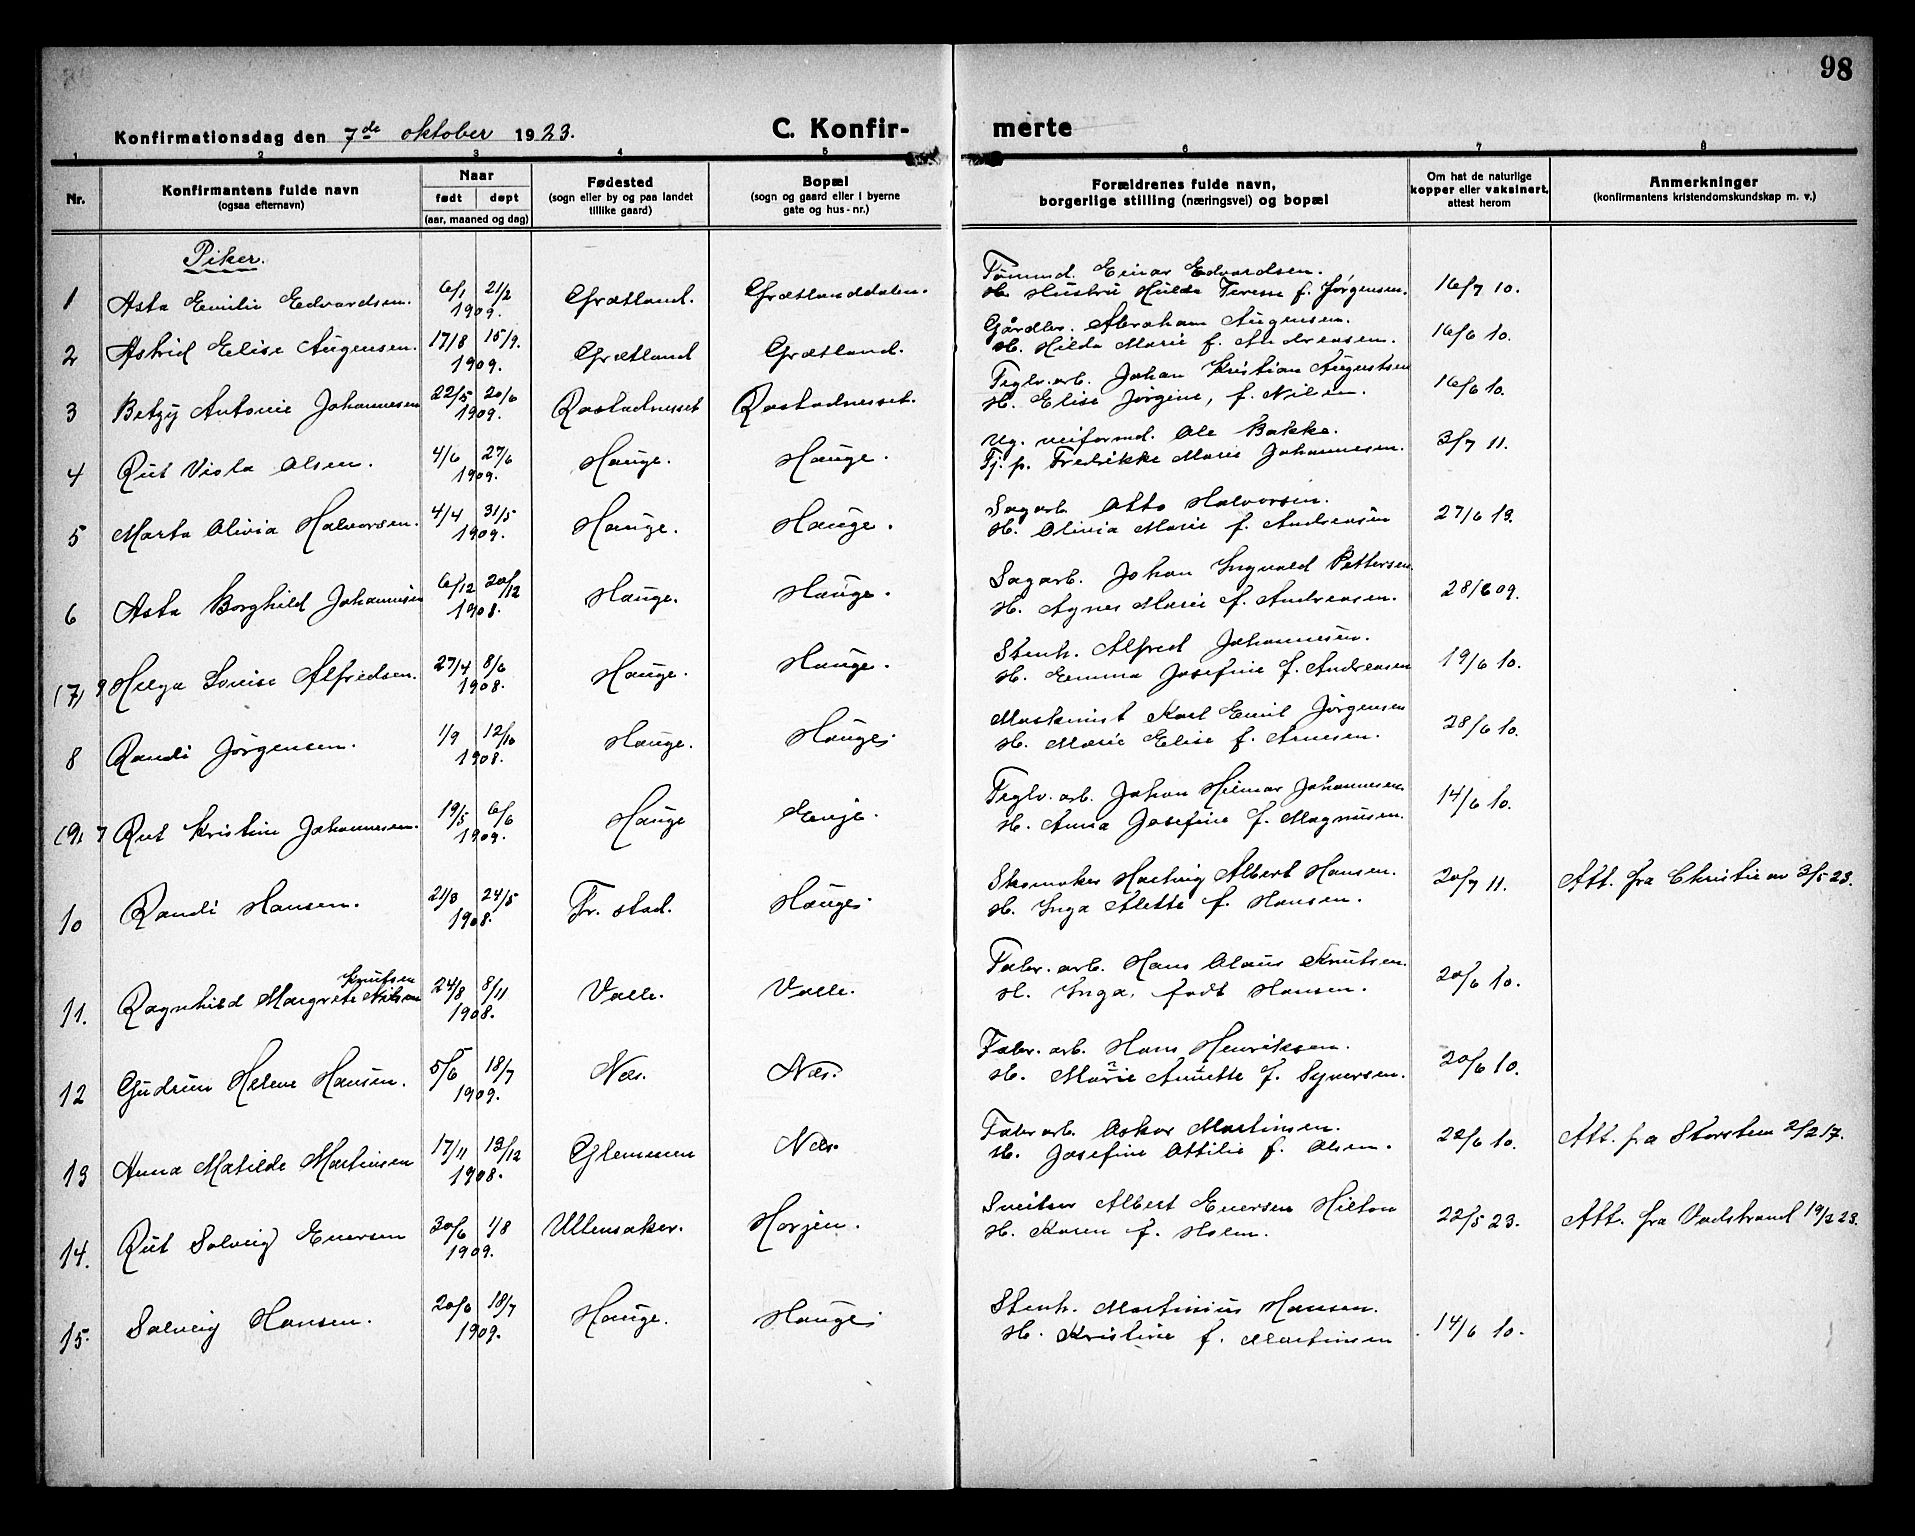 98
Konfirmationsdag den 7de oktober 1923.
C. Konfir-
merte
1 2 3 4 5 6 7 8
Nr.
Konfirmantens fulde navn
(ogsaa efternavn)
Naar
født døpt
(aar, maaned og dag)
Fødested
(sogn eller by og paa landet
tillike gaard)
Bopæl
(sogn og gaard eller i byerne
gate og hus-nr.)
Forældrenes fulde navn,
borgerlige stilling (næringsvei) og bopæl
Om hat de naturlige
kopper eller vaksinert,
attest herom
Anmerkninger
(konfirmantens kristendomskundskap m. v.)
Piker.
Tømmd. Einar Edvardsen.
1 Asta Emilie Edvardsen. 6/1 21/2 1909. Grætland. Grætlanddalen. H. Hustru Hulda Terese f. Jørgensen. 16/7 10.
Gårdbr. Abraham Augensen.
2 Astrid Elise Augensen. 17/8 15/9. 1909. Grætland Grætland. H. Hilda Marie f. Andreasen. 16/6 10.
Teglv. arb. Johan Kristian Augustsen
3 Betzy Antonie Johannesen 22/5 20/6 1909. Rostadnesset Rostadnesset. H. Elise Jørgine, f. Nilsen. 16/6 10.
Ug. veiformd. Ole Bakke.
4 Rut Viola Olsen. 4/6 27/6 1909. Hauge. Hauge. Tj. p. Fredrikke Marie Johannesen. 3/7 11.
Sagarb. Otto Halvorsen.
5 Marta Olivia Halvorsen. 4/4 31/5 1909. Hauge. Hauge. H. Olivia Marie f. Andreasen 27/6 13.
Sagarb. Johan Ingvald Pettersen.
6 Asta Borghild Johannesen 6/12 20/12 1908. Hauge. Hauge. H. Agnes Marie f. Andreasen. 28/6 09.
Stenh. Alfred Johannesen.
(7) 9 Helga Lovise Alfredsen. 27/4 8/6 1908. Hauge. Hauge. H. Emma Josefine f. Andreasen 19/6 10.
Maskinist Karl Emil Jørgensen
8 Randi Jørgensen. 1/9 12/10 1908. Hauge. Hauge. H. Marie Elise f. Arnesen. 28/6 10.
Teglv. arb. Johan Hilmar Johannesen
(9) 7 Rut Kristine Johannesen. 19/5 6/6 1909. Hauge H. Anna Josefine f. Magnusen. 14/6 10.
Skomaker Hartvig Albert Hansen.
10 Randi Hansen. 21/3 24/5 1908. Fr. stad. Hauge. H. Inga Alette f. Hansen. 20/7 11. Att. fra Christie av 3/5 23.
Fabr. arb. Hans Olaus Knutsen.
Knutsen
11. Ragnhild Margrete Nilsen 24/8 8/11 1908. Valle. Valle. H. Inga, født Hansen. 20/6 10.
Fabr. arb. Hans Henriksen.
12 Gudrun Helene Hansen. 5/6 18/7 1909. Næs. Næs. H. Marie Annette f. Syversen. 20/6 10.
Fabr. arb. Oskar Martinsen.
13 Anna Matilde Martinsen 17/11 13/12 1908. Glemmen Næs. H. Josefine Ottilie f. Olsen. 22/6 10. Att. fra Storsteen 2/2 17.
Sveitser Albert Eversen Hilton
14. Rut Solveig Eversen 30/6 1/8 1909. Ullensaker. Horjen. H. Karen f. Holm. 22/5 23. Att. fra Vadstrand 19/2 23.
Stenh. Martinius Hansen.
15. Solveig Hansen. 20/6 18/7 1909. Hauge. Hauge. H. Kristine f. Martinsen 14/6 10.